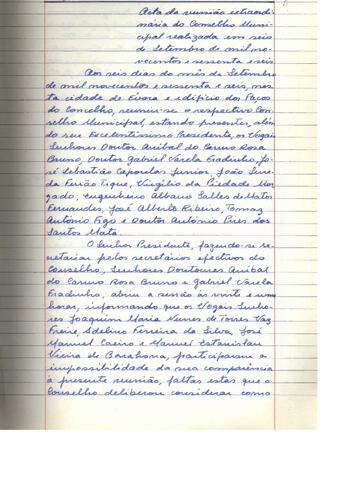 Acta da reunião extraordi-
nária do Conselho Muni-
cipal realizada em seis
de Setembro de mil no-
vecentos e sessenta e seis
Aos seis dias do mês de Setembro
de mil novecentos e sessenta e seis, nes-
ta cidade de Évora e edifício dos Paços
do Concelho, reuniu-se o respectivo Con-
selho Municipal, estando presentes, além
do seu Excelentíssimo Presidente, os Vogais
Senhores Doutor Anibal do Carmo Rosa
Bruno, Doutor Gabriel Varela Fradinho, Jo-
sé Sebastião Capoulas Junior, João Sure-
da Ferrão Tigue, Virgílio da Piedade Mor-
gado, Engenheiro Albano Salles de Matos
Fernandes, José Alberto Ribeiro, Tomaz
António Figo e Doutor António Pires dos
Santos Mata.
O Senhor Presidente, fazendo-se se-
cretariar pelos secretários efectivos do
Conselho, Senhores Doutores Anibal
do Carmo Rosa Bruno e Gabriel Varela
Fradinho, abriu a sessão às vinte e uma
horas, informando que os Vogais Senho-
res Joaquim Maria Nunes de Torres Vaz
Freire, Adelino Ferreira da Silva, José
Manuel Caeiro e Manuel Estanislau
Vieira de Barahona, participaram a
impossibilidade da sua comparência
à presente reunião, faltas estas que o
Conselho deliberou considerar como